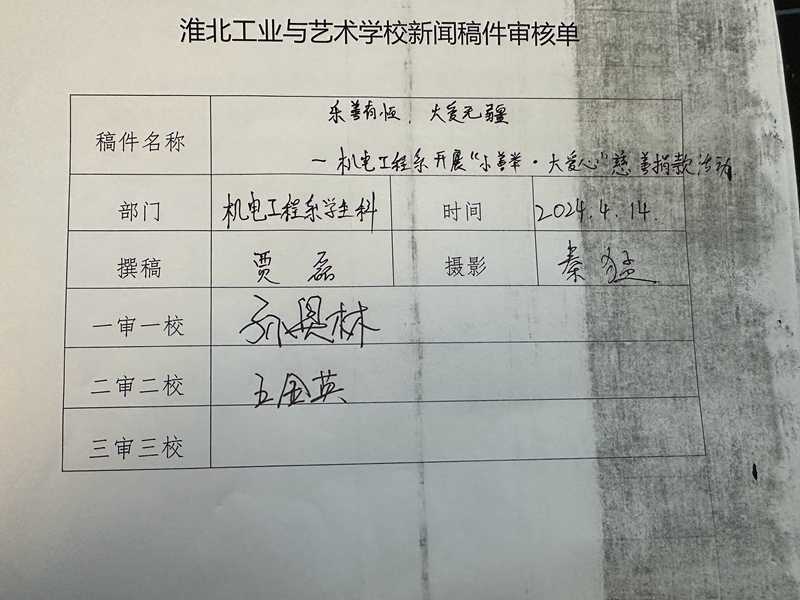 淮北工业与艺术学校新闻稿件审核单
稿件名称
乐善有恒，大爱无疆
—机电工程系开展“小善举·大爱心”慈善捐款活动
部门 机电工程系学生科 时间 2024.4.14.
撰稿 贾磊 摄影 秦猛
一审一校
二审二校 王金英
三审三校